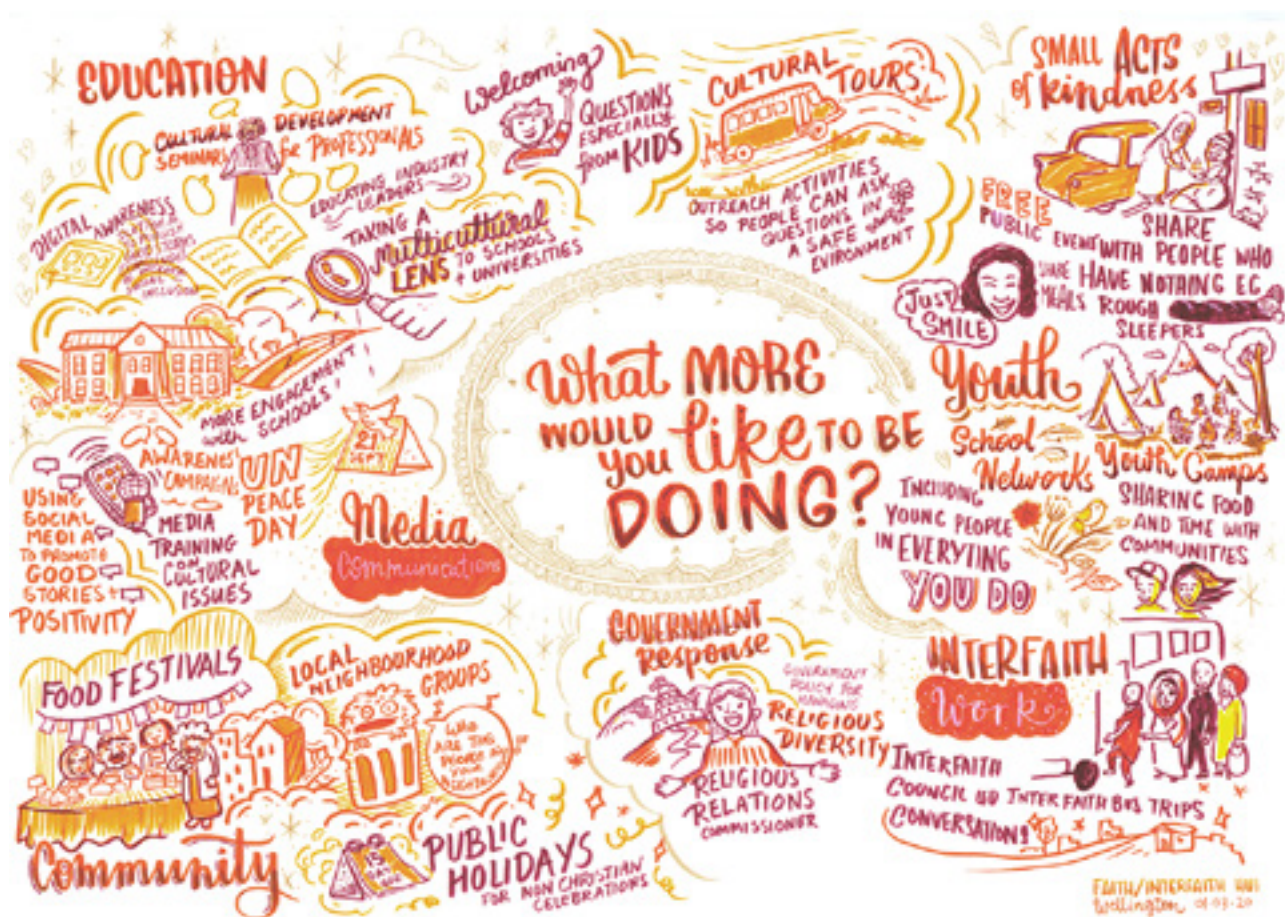 EDUCATION
CULTURAL DEVELOPMENT
SEMINARS for PROFESSIONALS
DIGITAL AWARENESS
EDUCATING INDUSTRY
LEADERS
TAKING A
Multicultural
LENS TO SCHOOLS
+ UNIVERSITIES
MORE ENGAGEMENT
with SCHOOLS
Welcoming
QUESTIONS
ESPECIALLY
from KIDS
CULTURAL
TOURS
OUTREACH ACTIVITIES
SO PEOPLE CAN ASK
QUESTIONS IN
A SAFE
ENVIRONMENT
SMALL ACTS
of kindness
FREE
PUBLIC EVENT
SHARE
MEALS
SHARE
WITH PEOPLE WHO
HAVE NOTHING EG
ROUGH
SLEEPERS
JUST
SMILE
What MORE
WOULD
you like TO BE
DOING?
Youth
School
Networks
Youth Camps
INCLUDING
YOUNG PEOPLE
IN EVERYTING
YOU DO
SHARING FOOD
AND TIME WITH
COMMUNITIES
AWARENESS
CAMPAIGNS
USING
SOCIAL
MEDIA
TO PROMOTE
GOOD
STORIES +
POSITIVITY
MEDIA
TRAINING
ON
CULTURAL
ISSUES
UN
PEACE
DAY
21
SEPT
Media
Communications
FOOD FESTIVALS
LOCAL
NEIGHBOURHOOD
GROUPS
WHO
ARE THE
PEOPLE IN
YOUR
Community
15
PUBLIC
HOLIDAYS
FOR NON CHRISTIAN
CELEBRATIONS
GOVERNMENT
Response
GOVERNMENT
POLICY FOR
RELIGIOUS
DIVERSITY
RELIGIOUS
RELATIONS
COMMISSIONER
INTERFAITH
Work
INTERFAITH
COUNCIL
INTERFAITH BUS TRIPS
CONVERSATIONS
FAITH/INTERFAITH HUI
Wellington 01.03.20